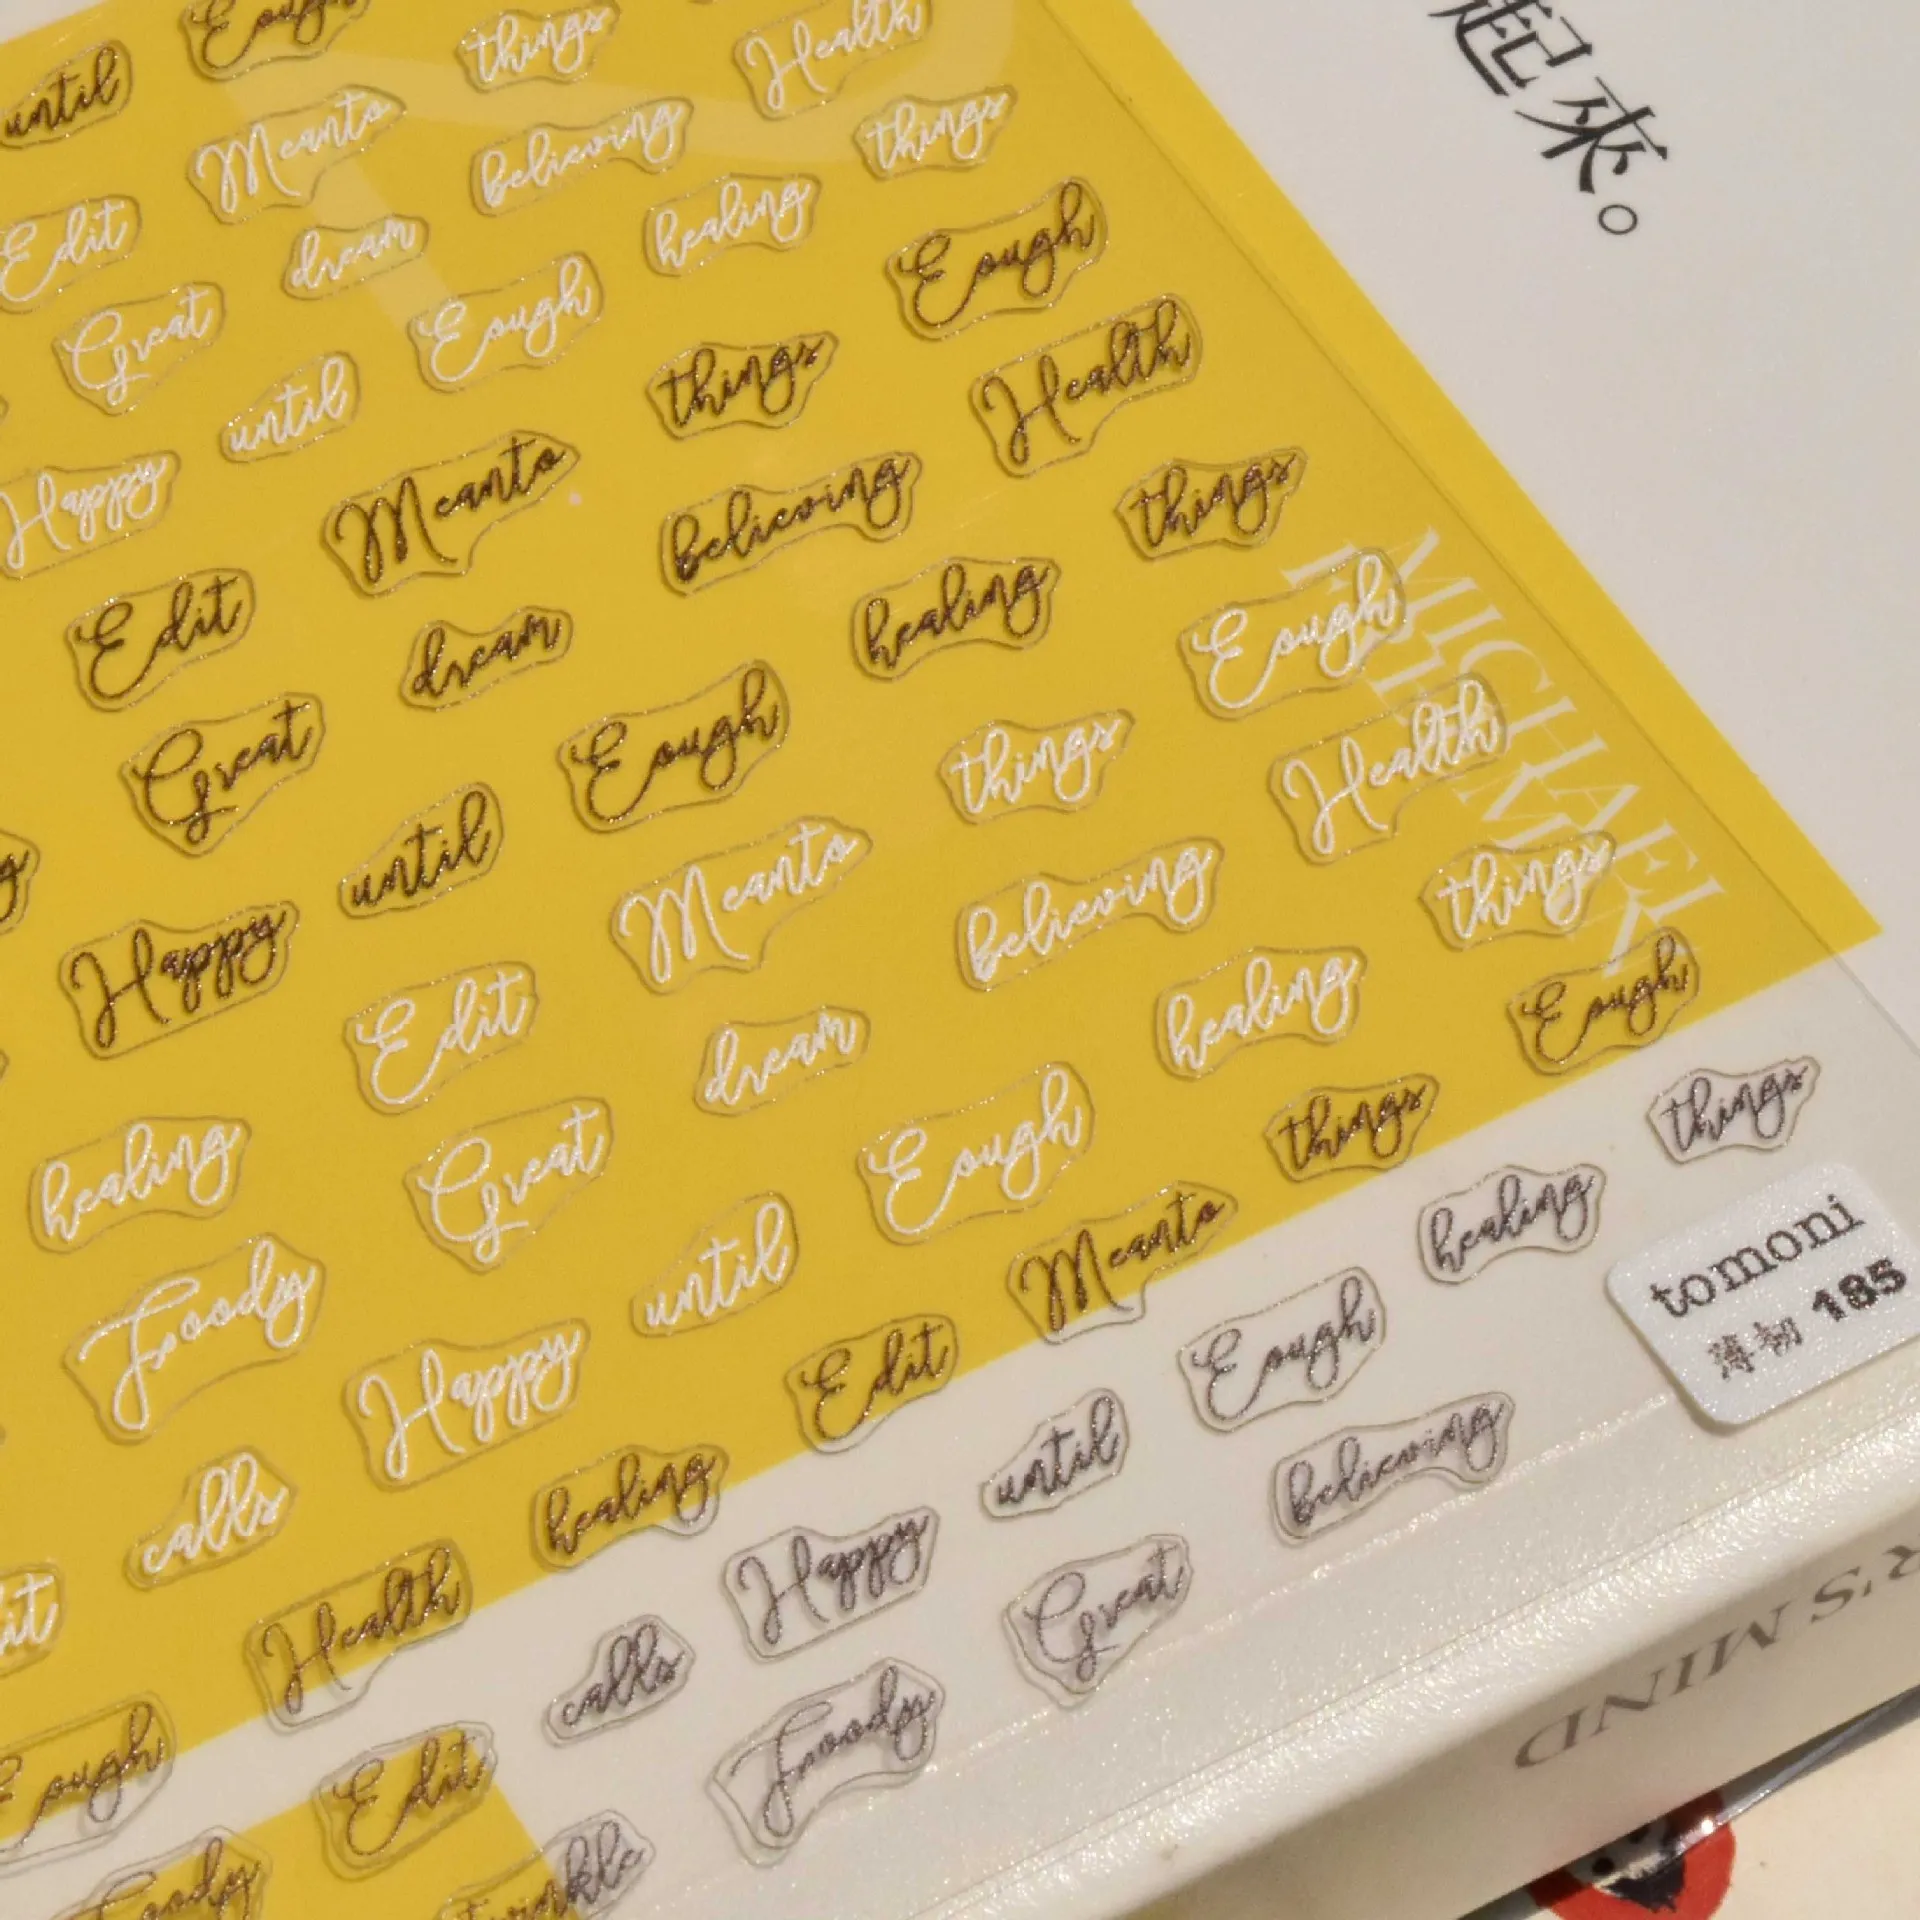 起來。
Eough
things
Health
until
Meanto
believing
things
Edit
dream
healing
Eough
Great
Eough
things
Health
until
Happy
Meanto
believing
things
Edit
dream
healing
Eough
Great
Eough
things
Health
until
Meanto
believing
things
Happy
Edit
dream
healing
Eough
healing
Great
Eough
things
things
Foody
until
Meanto
healing
Happy
Edit
Eough
calls
healing
until
believing
Health
Happy
Great
calls
Eough
Edit
Foody
Foody
Twinkle
MICHAEL
tomoni
薄韧 185
R'S MIND